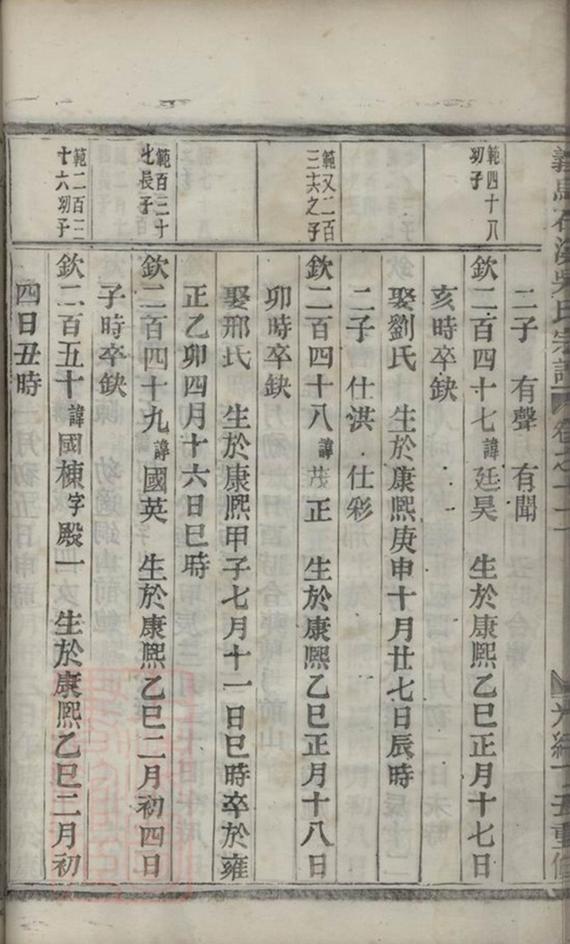 吳氏宗譜
二子　有聲　有聞
範四十八
幼子
欽二百四十七諱廷昊　生於康熙乙巳正月十七日
亥時卒缺
娶劉氏　生於康熙庚申十月廿七日辰時
二子　仕洪　仕彩
範又二百
三六之子
欽二百四十八諱茂正　生於康熙乙巳正月十八日
卯時卒缺
娶邢氏　生於康熙甲子七月十一日巳時卒於雍
正乙卯四月十六日巳時
範百三十
七長子
欽二百四十九諱國英　生於康熙乙巳二月初四日
子時卒缺
範二百三
十六幼子
欽二百五十諱國棟字殿一　生於康熙乙巳二月初
四日丑時